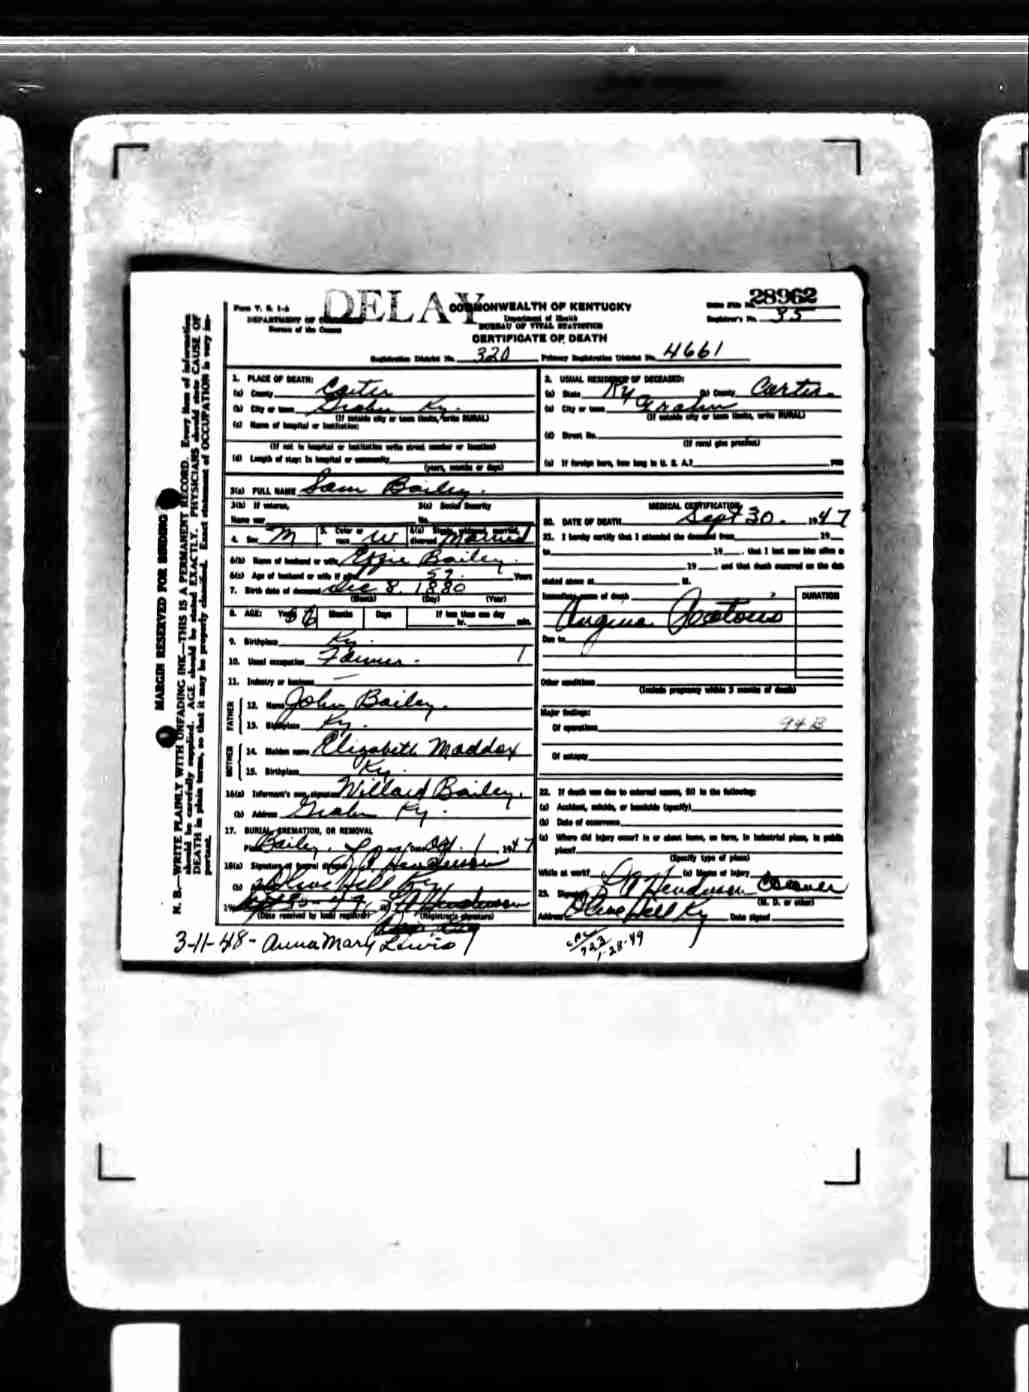 Form V. S. 1-A
DELAY
COMMONWEALTH OF KENTUCKY
28962
DEPARTMENT OF
Department of Health
Registrar's No. 35
Bureau of the Census
BUREAU OF VITAL STATISTICS
CERTIFICATE OF DEATH
Registration District No. 320 Primary Registration District No. 4661
1. PLACE OF DEATH:
(a) County Carter
(b) City or town Grahn Ky.
(If outside city or town limits, write RURAL)
(c) Name of hospital or institution:
(If not in hospital or institution write street number or location)
(d) Length of stay: In hospital or community
(years, months or days)
2. USUAL RESIDENCE OF DECEASED:
(a) State Ky (b) County Carter
(c) City or town Grahn
(If outside city or town limits, write RURAL)
(d) Street No.
(If rural give precinct)
(e) If foreign born, how long in U. S. A.?
3(a) FULL NAME Sam Bailey.
3(b) If veteran, 3(c) Social Security
Name war No.
4. Sex M 5. Color or race W 6(a) Single, widowed, married, divorced Married
6(b) Name of husband or wife Effie Bailey.
6(c) Age of husband or wife if alive 57. Years
7. Birth date of deceased Dec 8. 1880
(Month) (Day) (Year)
8. AGE: Years 66 Months Days If less than one day
hr. min.
9. Birthplace Ky.
10. Usual occupation Farmer.
11. Industry or business
FATHER
12. Name John Bailey.
13. Birthplace Ky.
MOTHER
14. Maiden name Elizabeth Maddox
15. Birthplace Ky.
16(a) Informant's own signature Willard Bailey.
(b) Address Grahn Ky.
17. BURIAL, CREMATION, OR REMOVAL
Bailey. Oct. 1 1947
18(a) Signature of funeral director Henderson
(b) Olive Hill Ky
(Date received by local registrar) (Registrar's signature)
MEDICAL CERTIFICATION
20. DATE OF DEATH Sept 30. 1947
21. I hereby certify that I attended the deceased from 19
to 19 , that I last saw him alive
19 , and that death occurred on the date
stated above at M.
Immediate cause of death DURATION
Angina Pectoris
Due to
Other conditions
(Include pregnancy within 3 months of death)
Major findings:
Of operations 94 B
Of autopsy
22. If death was due to external causes, fill in the following:
(a) Accident, suicide, or homicide (specify)
(b) Date of occurrence
(c) Where did injury occur? In or about home, on farm, in industrial place, in public
place?
(Specify type of place)
While at work? (e) Means of injury
23. Signature Henderson Coroner
(M. D. or other)
Address Olive Hill Ky Date signed
3-11-48- Anna Mary Lewis
1-28-49
MARGIN RESERVED FOR BINDING
N. B.—WRITE PLAINLY WITH UNFADING INK—THIS IS A PERMANENT RECORD. Every item of information
should be carefully supplied. AGE should be stated EXACTLY. PHYSICIANS should state CAUSE OF
DEATH in plain terms, so that it may be properly classified. Exact statement of OCCUPATION is very im-
portant.